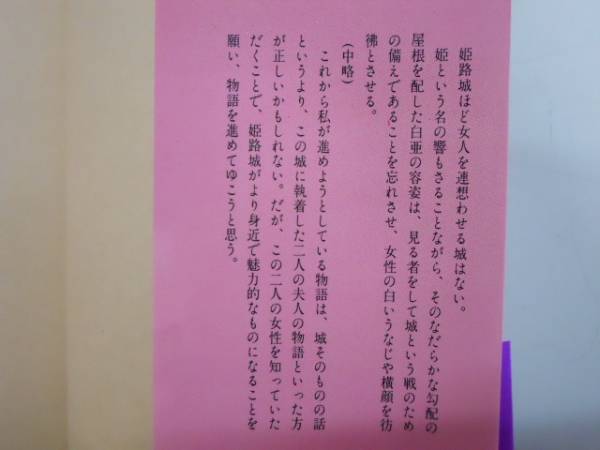 姫路城ほど女人を連想わせる城はない。
姫という名の響もさることながら、そのなだらかな勾配の
屋根を配した白亜の容姿は、見る者をして城という戦のため
の備えであることを忘れさせ、女性の白いうなじや横顔を彷
彿とさせる。
(中略)
これから私が進めようとしている物語は、城そのものの話
というより、この城に執着した二人の夫人の物語といった方
が正しいかもしれない。だが、この二人の女性を知っていた
だくことで、姫路城がより身近で魅力的なものになることを
願い、物語を進めてゆこうと思う。